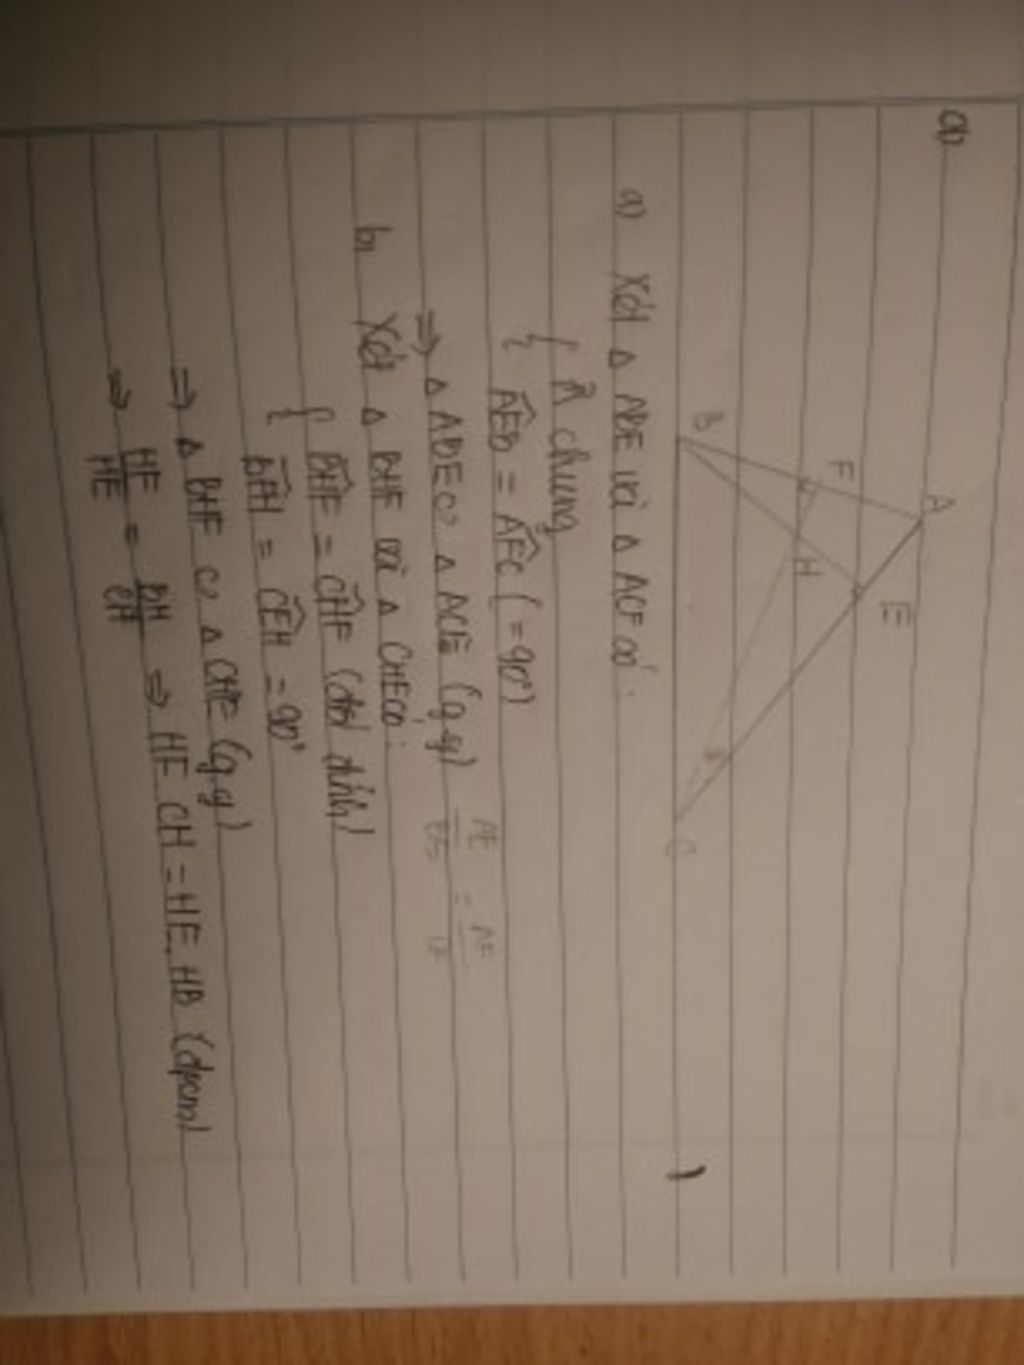 a)
A
F
E
H
B
C
a) Xét Δ ABE và Δ ACF có.
{ Â chung
AÊB = AF̂C (= 90°)
=> Δ ABE ∽ Δ ACF (g.g)
AE = AF
b, Xét Δ BHF và Δ CHE có:
{ BĤF = CĤF (đối đỉnh)
BF̂H = CÊH = 90°
=> Δ BHF ∽ Δ CHE (g.g)
=> HF/HE = BH/CH => HF CH = HE. HB (đpcm)